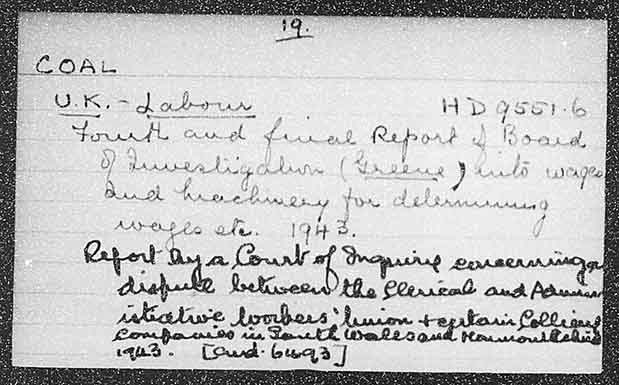 19.
COAL
U.K. - Labour HD 9551.6
Fourth and final Report of Board
of Investigation (Greene) into wages
and machinery for determining
wages etc. 1943.
Report by a Court of Inquiry concerning a
dispute between the Clerical and Admin-
istrative Workers' Union + certain Colliery
Companies in South Wales and Monmouthshire
1943. [Cmd. 6493]